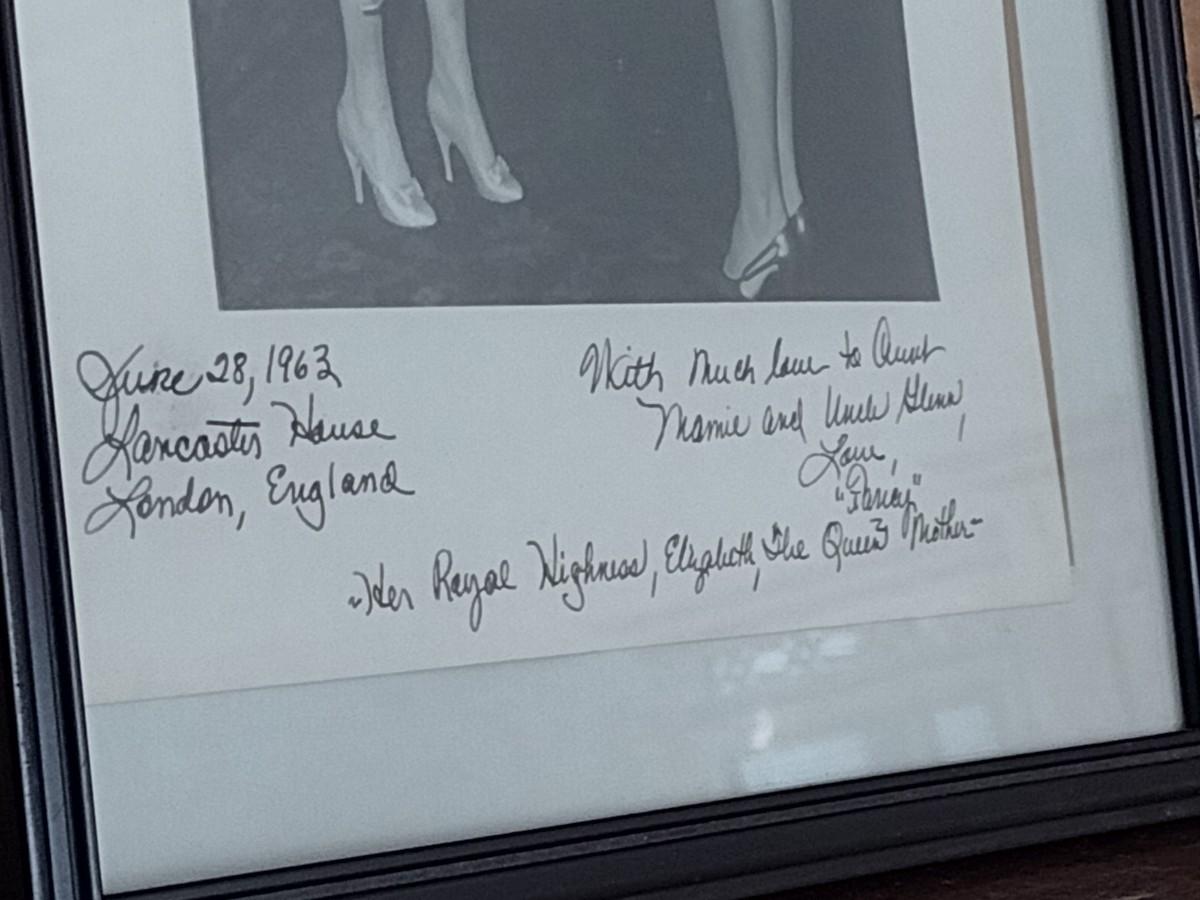 June 28, 1963
Lancaster House
London, England
With much love to Aunt
Mamie and Uncle Glenn,
Love,
"Nancy"
~Her Royal Highness, Elizabeth, The Queen Mother~